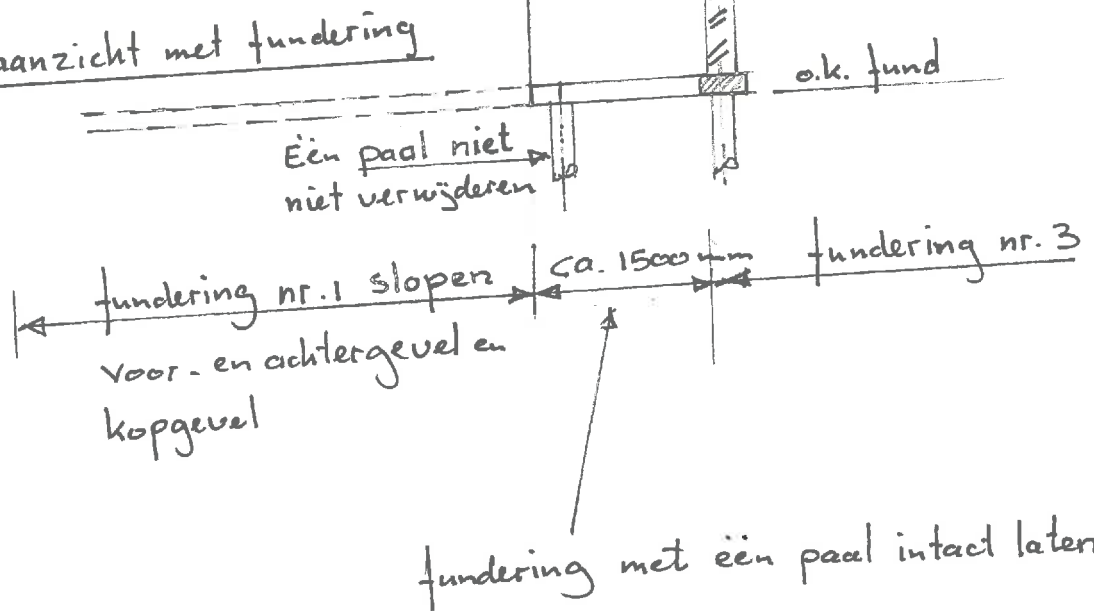 aanzicht met fundering
o.k. fund
Eén paal niet
niet verwijderen
fundering nr. 1 slopen
ca. 1500 mm
fundering nr. 3
voor- en achtergevel en
kopgevel
fundering met één paal intact laten